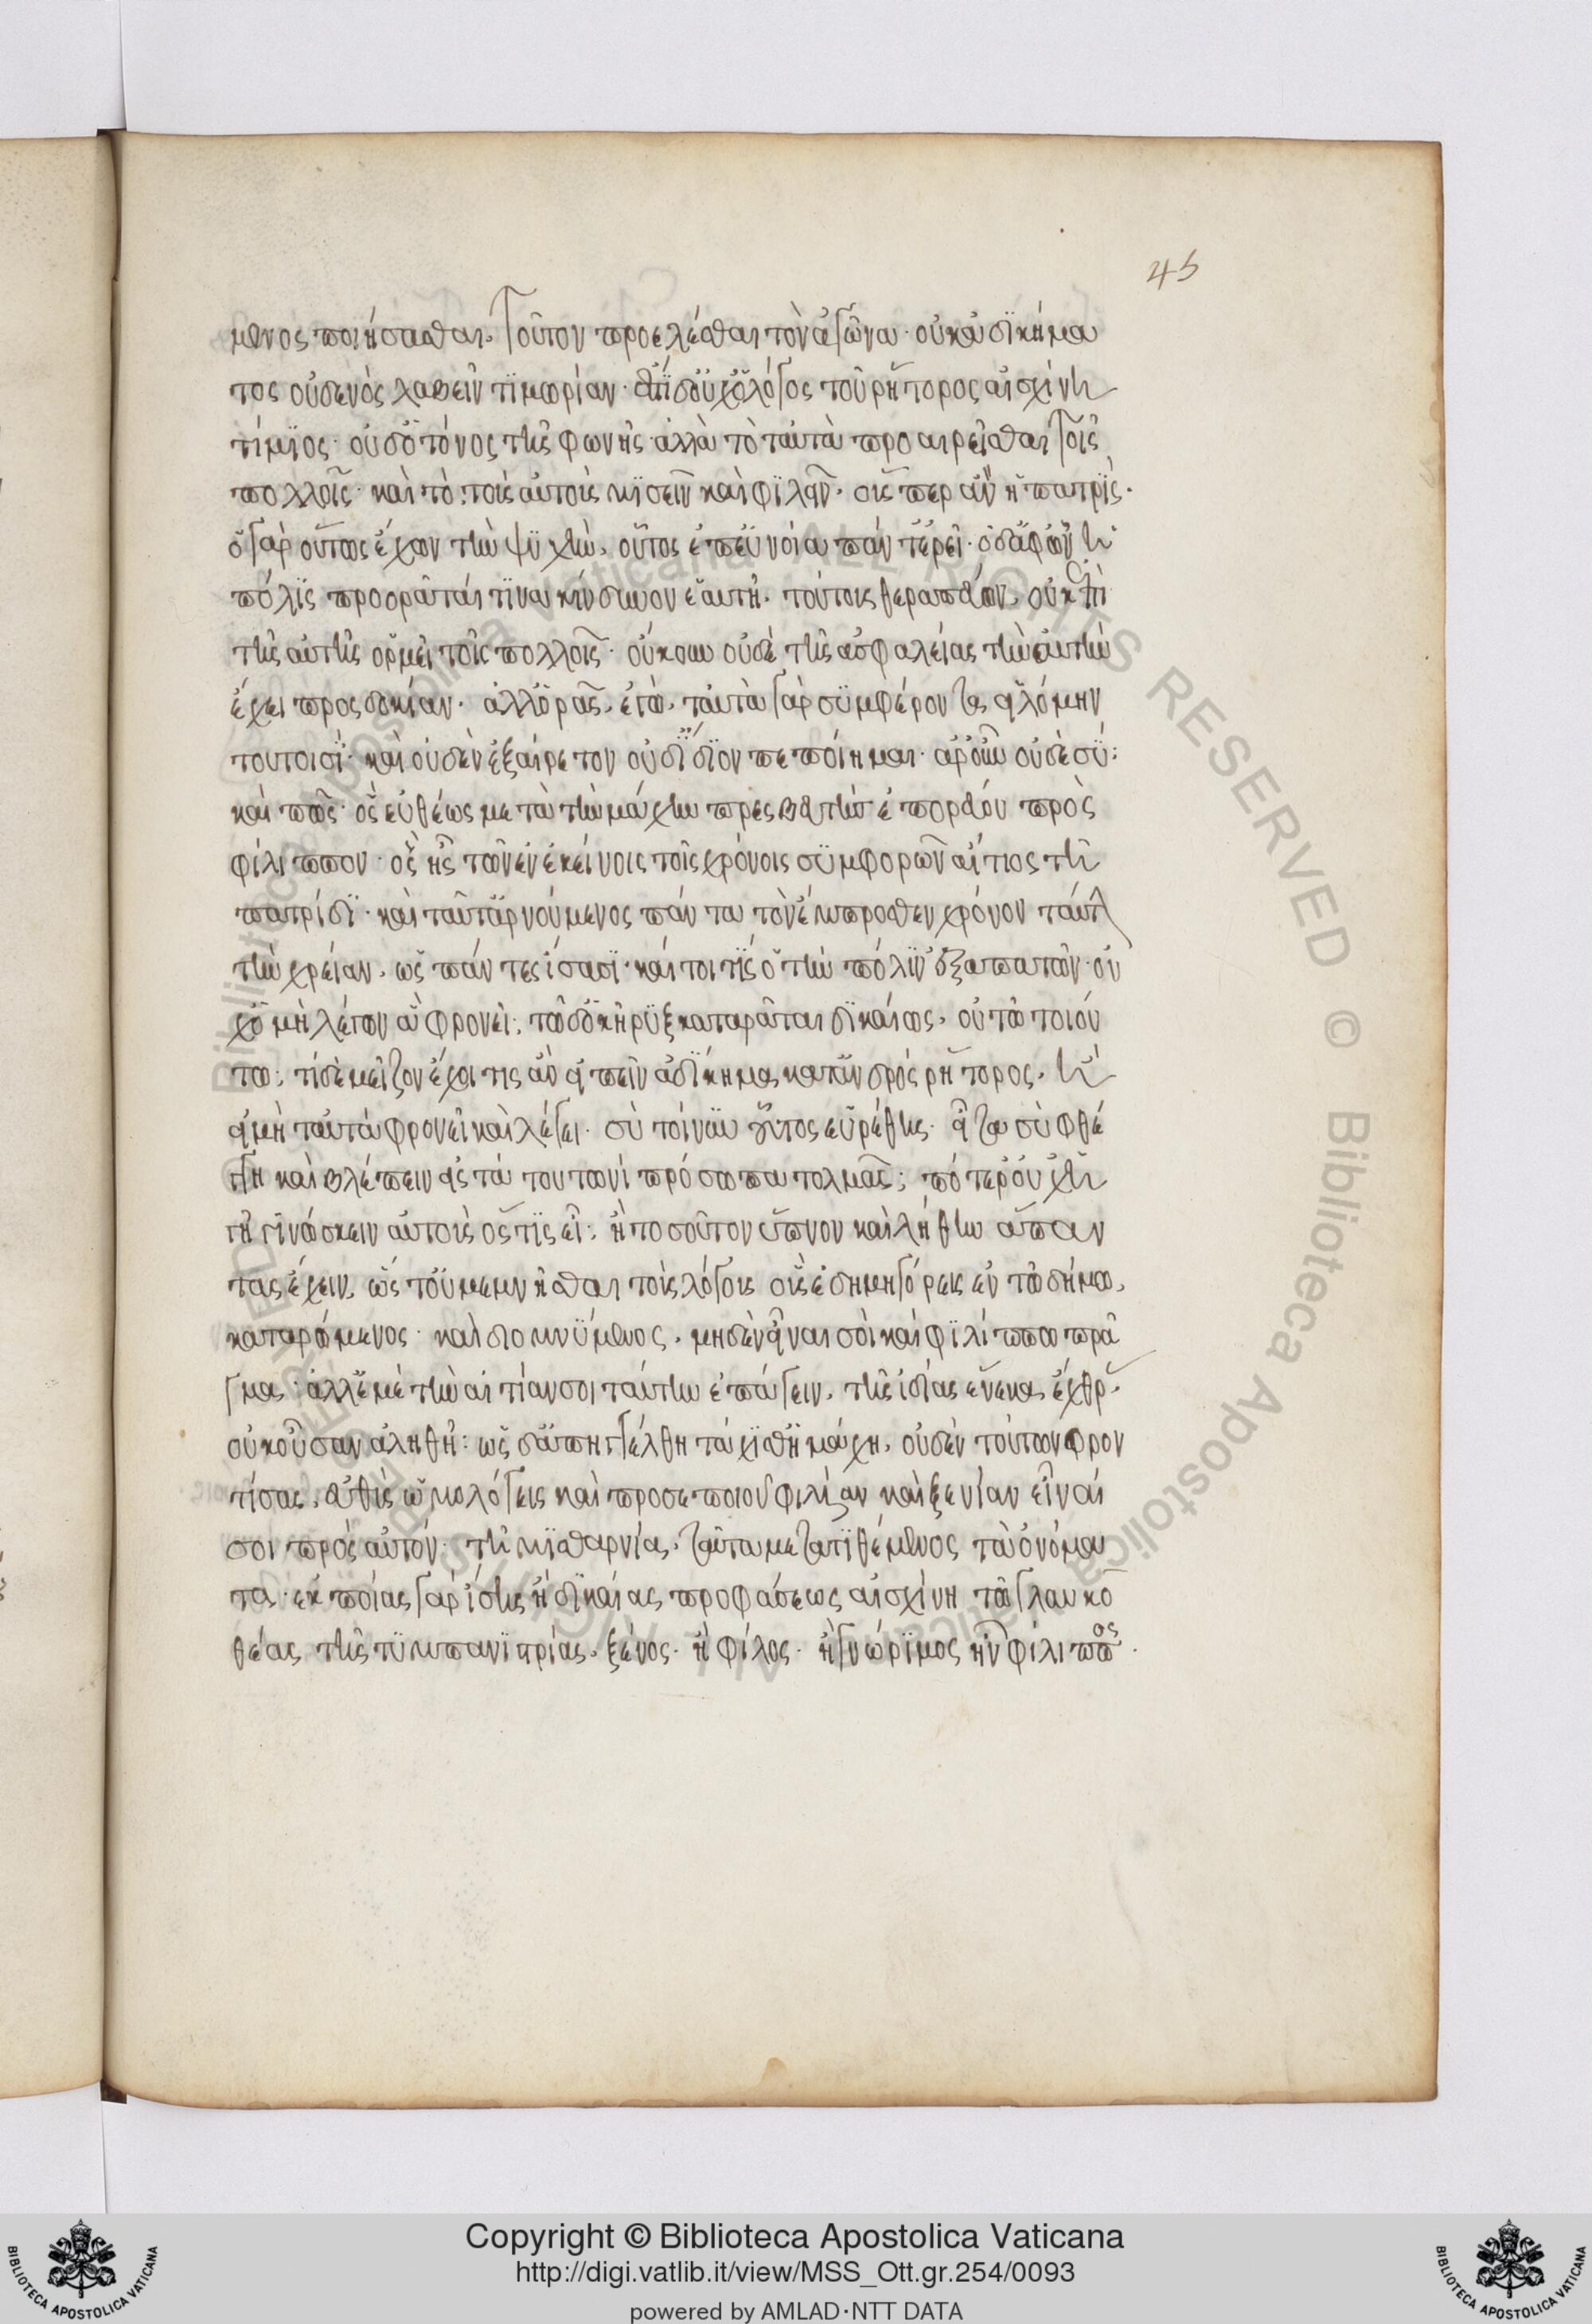 45
μενος ποιήσασθαι. τοῦτον προελέσθαι τὸν ἀγῶνα· οὐκ ἀδικήμα
τος οὐδενὸς λαβεῖν τϊμωρίαν· ἔστϊ δ' οὐχ ὁ λόγος τοῦ ῥήτορος αἰσχίνη
τίμϊος· οὐδ' ὁ τόνος τῆς φωνῆς· ἀλλὰ τὸ ταὐτὰ προαιρεῖσθαι τοῖς
πολλοῖς· καὶ τὸ τοὺς αὐτοὺς μϊσεῖν καὶ φϊλεῖν· οὕσπερ ἂν ἡ πατρίς·
ὁ γὰρ οὕτως ἔχων τὴν ψϋχὴν, οὗτος ἐπ' εὐνοία πάντ' ἐρεῖ· ὁ δ' ἀφ' ὧν ἡ
πόλϊς προορᾶταί τϊνα κίνδυνον ἑαυτῆ· τούτους θεραπεύων, οὐκ ἐπὶ
τῆς αὐτῆς ὁρμεῖ τοῖς πολλοῖς· οὔκουν οὐδὲ τῆς ἀσφαλείας τὴν αὐτὴν
ἔχει προσδοκίαν· ἀλλ' ὁρᾶς, ἐγώ, ταὐτὰ γὰρ συμφέρονθ' εἱλόμην
τουτοισΐ· καὶ οὐδὲν ἐξαίρετον οὐδ' ἴδϊον πεποίημαι· ἆρ' οὖν οὐδὲ σύ;
καὶ πῶς· ὃς εὐθέως μετὰ τὴν μάχην πρεσβευτὴς ἐπορεύου πρὸς
φίλιππον· ὃς ἦς τῶν ἐν ἐκείνοις τοῖς χρόνοις συμφορῶν αἴτιος τῆ
πατρίδϊ· καὶ ταῦτ' ἀρνούμενος πάντα τὸν ἔμπροσθεν χρόνον ταύτ
τὴν χρείαν, ὡς πάντες ἴσασϊ· καίτοι τίς ὁ τὴν πόλϊν ἐξαπατῶν· οὐ
χ ὁ μὴ λέγων ἃ φρονεῖ; τῶ δ' ὁ κῆρϋξ καταρᾶται δϊκαίως, οὐ τῶ τοιού
τω; τί δὲ μεῖζον ἔχοι τις ἂν εἰπεῖν ἀδίκημα κατ' ἀνδρὸς ῥήτορος, ἢ
εἰ μὴ ταὐτὰ φρονεῖ καὶ λέγει· σὺ τοίνυν οὗτος εὑρέθης· εἶτα σὺ φθέ
γγη καὶ βλέπειν εἰς τὰ τουτωνὶ πρόσωπα τολμᾶς; πότερ' οὐχ ἡ
γῆ γϊνώσκειν αὐτοὺς ὅς τις εἶ; ἢ τοσοῦτον ὕπνον καὶ λήθην ἅπαν
τας ἔχειν, ὥς τ' οὐ μεμνῆσθαι τοὺς λόγους οὓς ἐδημηγόρεις ἐν τῶ δήμω,
καταρώμενος· καὶ διομνύμενος, μηδὲν εἶναι σοὶ καὶ φϊλίππω πρᾶ
γμα· ἀλλ' ἐμὲ τὴν αἰτίαν σοι ταύτην ἐπάγειν, τῆς ἰδίας ἕνεκα ἔχθρ·
οὐκ οὖσαν ἀληθῆ: ὡς δ' ἀπηγγέλθη τάχϊσθ' ἡ μάχη, οὐδὲν τούτων φρον
τίσας, εὐθὺς ὡμολόγεις καὶ προσεποιοῦ φιλίαν καὶ ξενίαν εἶναί
σοι πρὸς αὐτόν· τῆ μϊσθαρνία, ταῦτα μετατϊθέμενος τὰ ὀνόμα
τα· ἐκ ποίας γὰρ ἴσης ἢ δϊκαίας προφάσεως αἰσχίνη τῶ γλαυκο
θέας τῆς τϋμπανϊστρίας, ξένος· ἢ φίλος· ἢ γνώρϊμος ἦν φίλιππος·
Copyright © Biblioteca Apostolica Vaticana
http://digi.vatlib.it/view/MSS_Ott.gr.254/0093
powered by AMLAD·NTT DATA